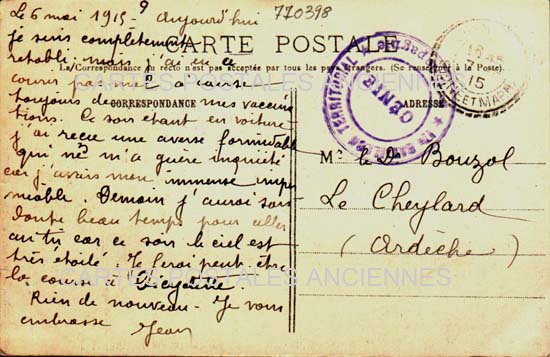 Le 6 mai 1915 - Aujourd'hui
770398
je suis complètement
rétabli mais j'ai eu
CARTE POSTALE
La Correspondance au recto n'est pas acceptée par tous les pays étrangers. (Se renseigner à la Poste)
à cause
toujours de mes vaccina
tions. Ce soir étant en voiture
CORRESPONDANCE
ADRESSE
BATAILLON TERRITORIAL
GÉNIE
15
ET MARNE
j'ai reçu une averse formidable
qui ne m'a guère inquiété
car j'avais mon immense imper
méable. Demain j'aurai sans
doute beau temps pour aller
au car ce soir le ciel est
très étoilé. Je ferai peut être
la course à bicyclette
Rien de nouveau - Je vous
embrasse
Jean
Mr le Dr Bouzol
Le Cheylard
(Ardèche)
CARTES POSTALES ANCIENNES
CARTES POSTALES ANCIENNES